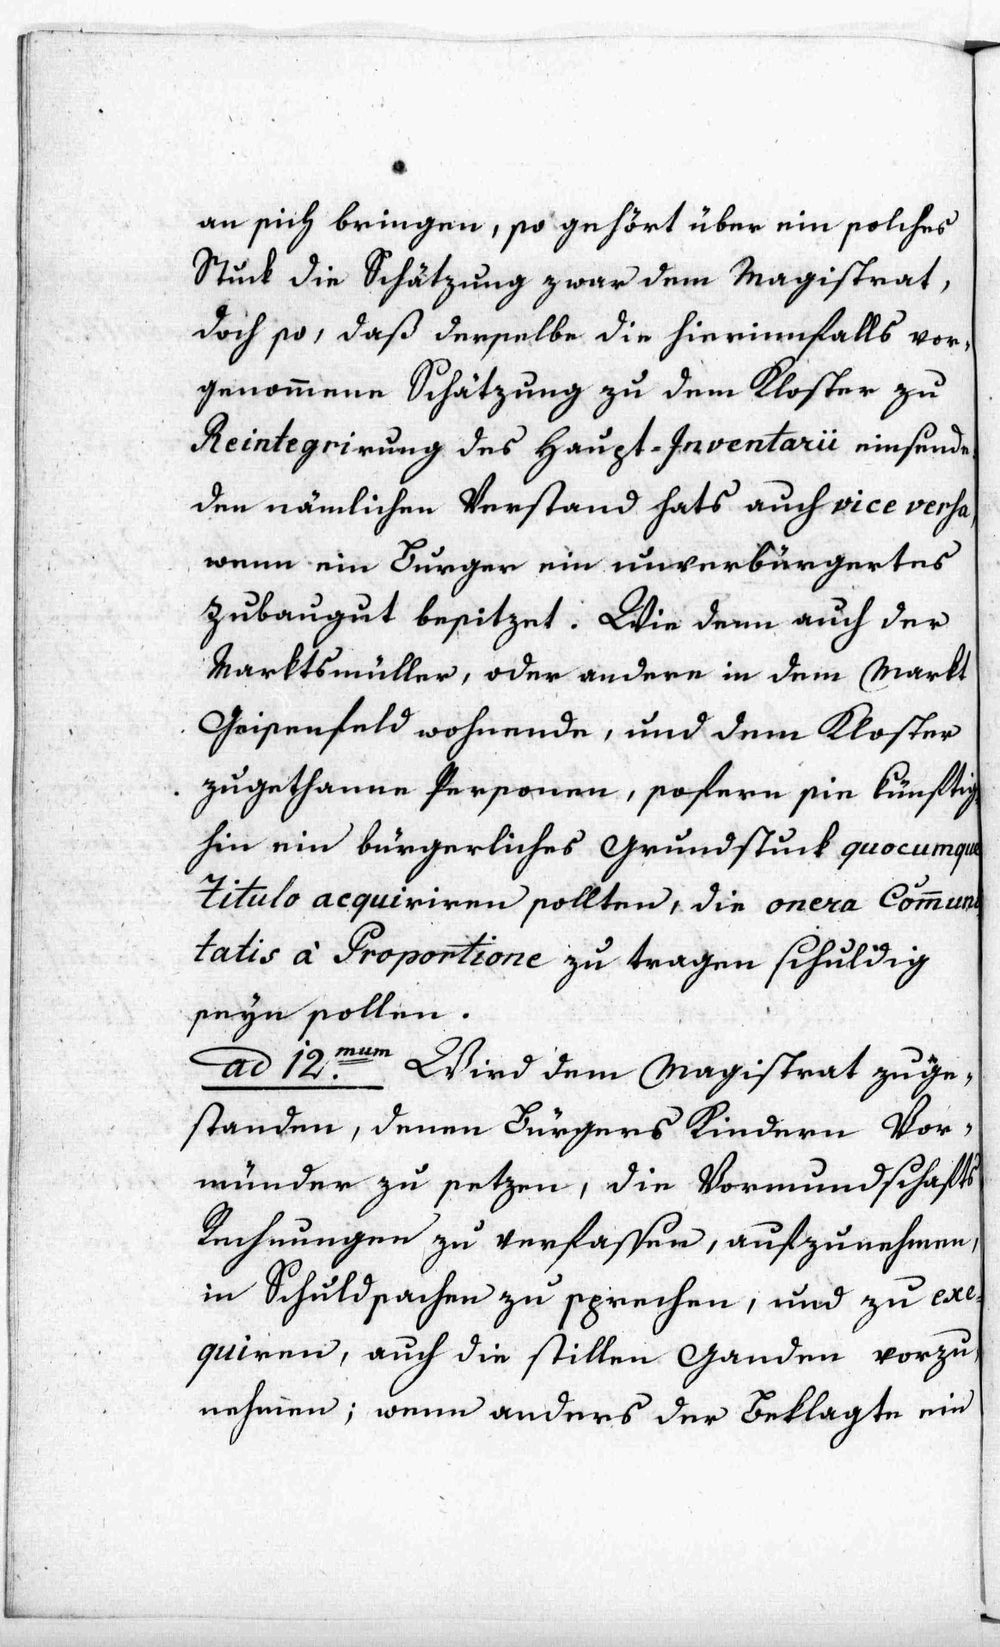 an sich bringen, so gehört über ein solches
Stuck die Schätzung zwar dem Magistrat,
doch so, daß derselbe die hierinnfalls vor-
genom̅ene Schätzung zu dem Kloster zu
Reintegrirung des Haupt-Inventarii einsende
den nämlichen Verstand hats auch vice versa,
wenn ein Burger ein unverbürgertes
Zubaugut besitzet. Wie denn auch der
Marktsmüller, oder andere in dem Markt
Geisenfeld wohnende, und dem Kloster
zugethanne Personen, sofern sie künftig-
hin ein bürgerliches Grundstuck quocumque
Titulo acquiriren sollten, die onera Com̅uni
tatis à Proportione zu tragen schuldig
seyn sollen.
ad 12.mum Wird dem Magistrat zuge-
standen, denen Bürgers Kindern Vor-
münder zu setzen, die Vormundschafts
Rechnungen zu verfassen, aufzunehmen,
in Schuldsachen zu sprechen, und zu exe-
quiren, auch die stillen Ganden vorzu-
nehmen; wenn anders der Beklagte ein